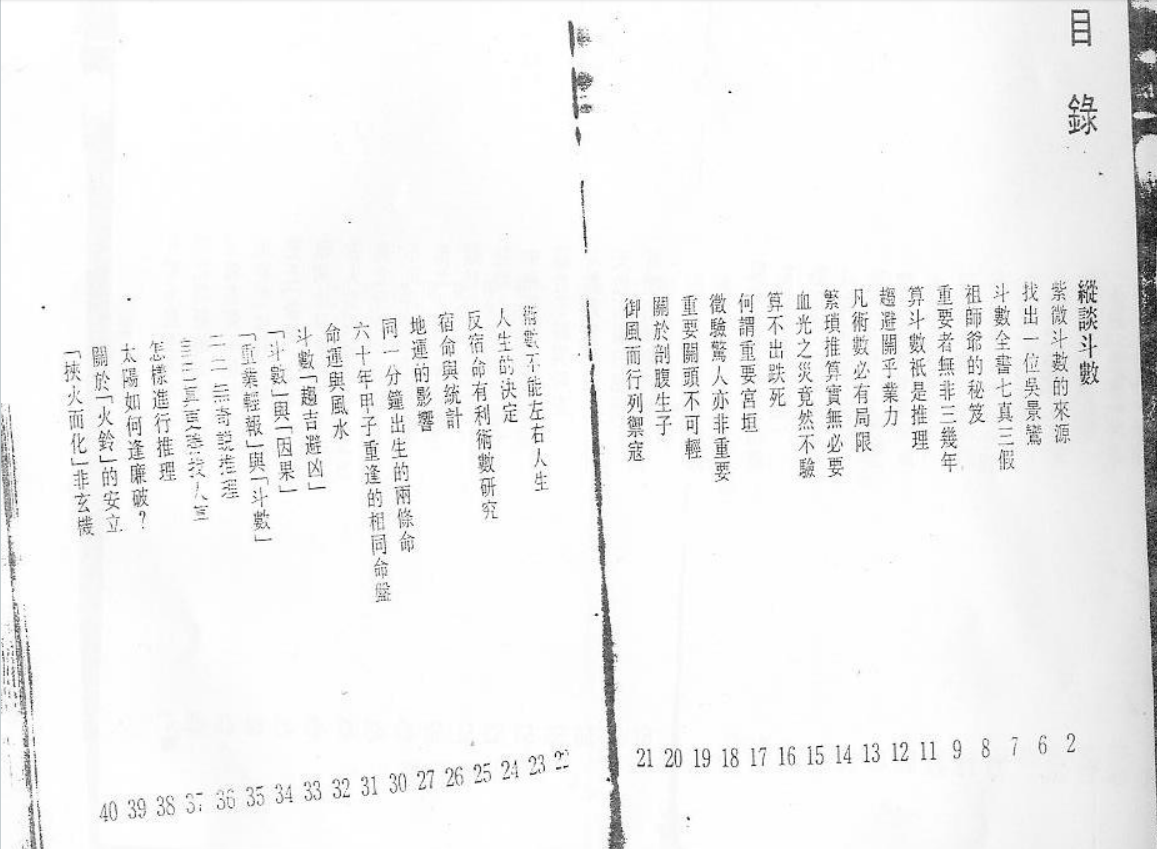 目錄
縱談斗數
紫微斗數的來源 2
找出一位吳景鸞 6
斗數全書七真三假 7
祖師爺的秘笈 8
重要者無非三幾年 9
算斗數祇是推理 11
趨避關乎業力 12
凡術數必有局限 13
繁瑣推算實無必要 14
血光之災竟然不驗 15
算不出跌死 16
何謂重要宮垣 17
徵驗驚人亦非重要 18
重要關頭不可輕 19
關於剖腹生子 20
御風而行列禦寇 21
術數不能左右人生 22
人生的決定 23
反宿命有利術數研究 24
宿命與統計 25
地運的影響 26
同一分鐘出生的兩條命 27
六十年甲子重逢的相同命盤 30
命運與風水 31
斗數「趨吉避凶」 32
「斗數」與「因果」 33
「重業輕報」與「斗數」 34
無奇說推理 35
36
怎樣進行推理 37
太陽如何逢廉破？ 38
關於「火鈴」的安立 39
「挾火而化」非玄機 40